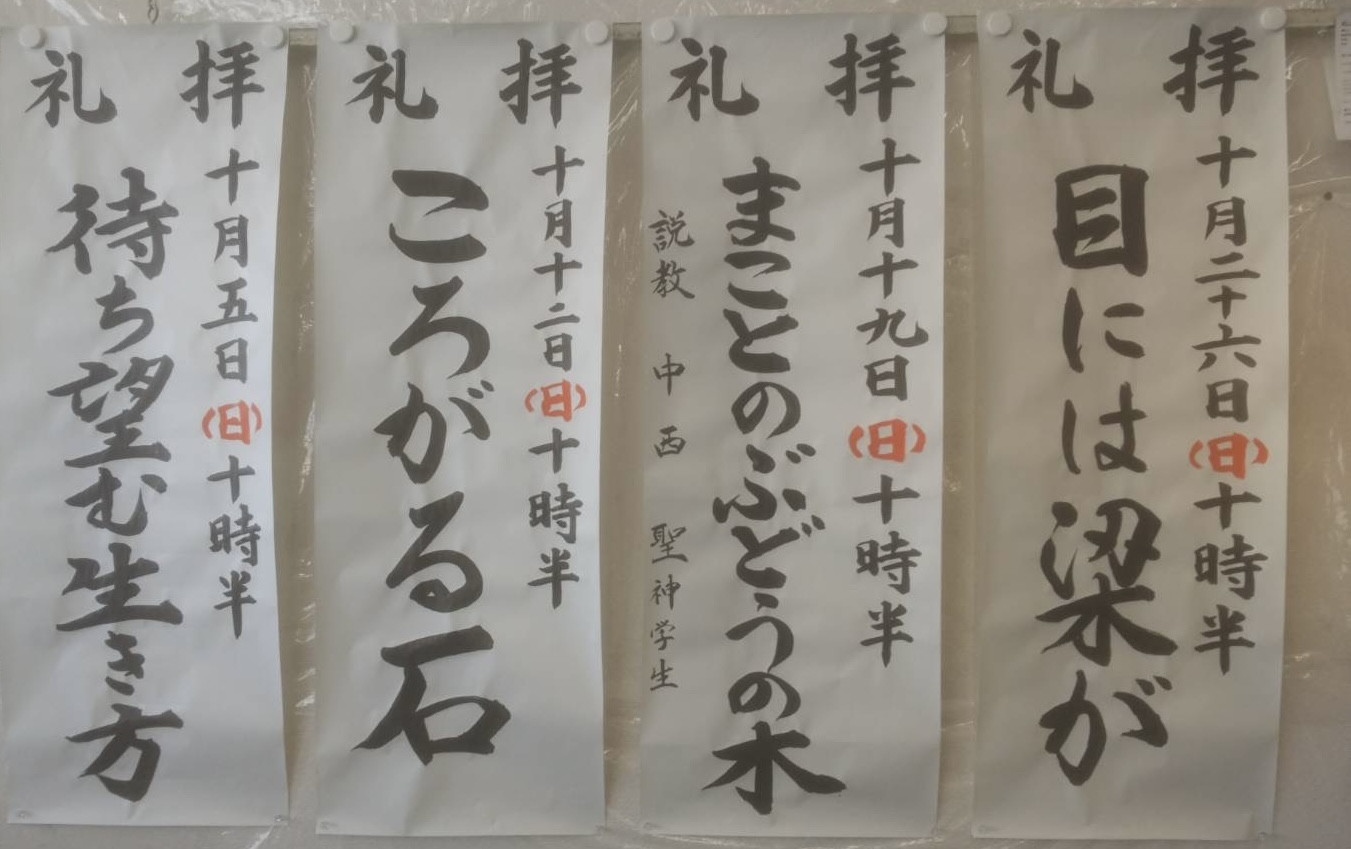 拝礼
十月二十六日(日)十時半
目には梁が
拝礼
十月十九日(日)十時半
まことのぶどうの木
説教 中西 聖神学生
拝礼
十月十二日(日)十時半
ころがる石
拝礼
十月五日(日)十時半
待ち望む生き方